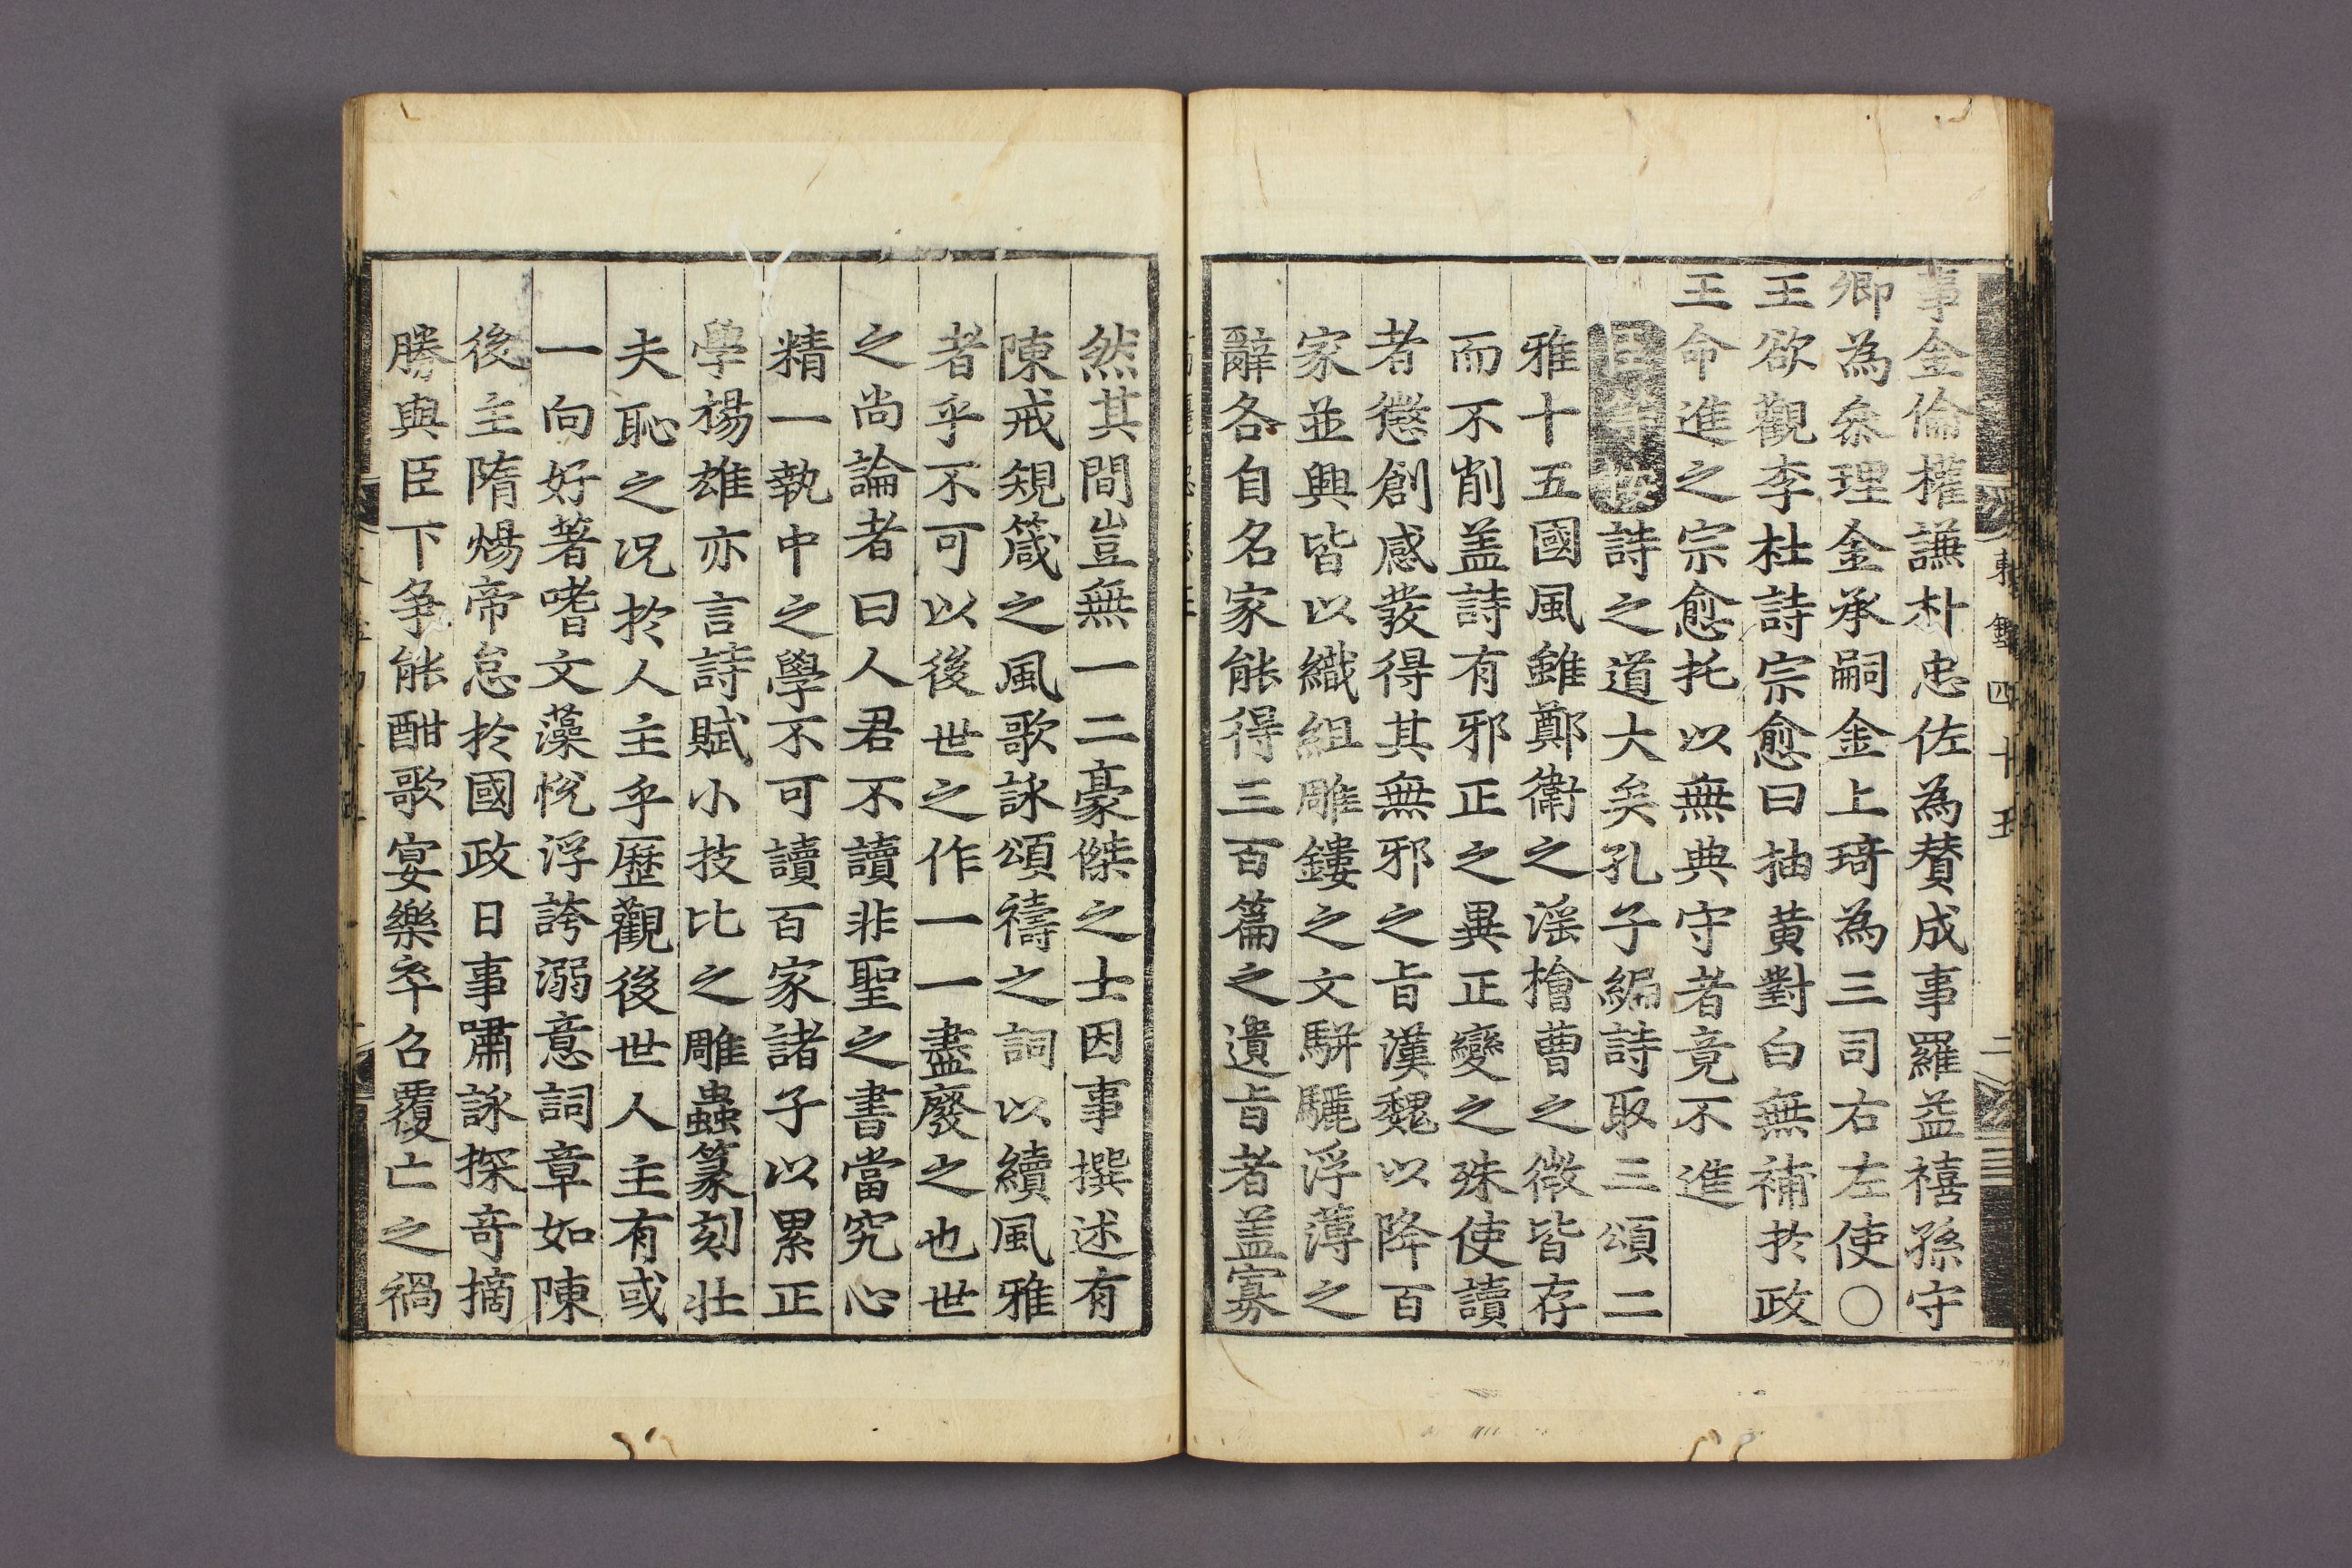 事金倫權謙朴忠佐為賛成事羅益禧孫守
卿為叅理金承嗣金上琦為三司右左使〇
王欲觀李杜詩宗愈曰抽黄對白無補扵政
王命進之宗愈托以無典守者竟不進
臣等按詩之道大矣孔子編詩取三頌二
雅十五國風雖鄭衛之滛檜曹之微皆存
而不削盖詩有邪正之異正變之殊使讀
者懲創感發得其無邪之旨漢魏以降百
家並興皆以織組雕鏤之文駢驪浮薄之
辭各自名家能得三百篇之遺旨者盖寡
然其間豈無一二豪傑之士因事撰述有
陳戒規箴之風歌詠頌禱之詞以續風雅
者乎不可以後世之作一一盡廢之也世
之尚論者曰人君不讀非聖之書當究心
精一執中之學不可讀百家諸子以累正
學楊雄亦言詩賦小技比之雕蟲篆刻壯
夫恥之况扵人主乎歷觀後世人主有或
一向好著嗜文藻悅浮誇溺意詞章如陳
後主隋煬帝怠扵國政日事嘯詠探竒摘
勝與臣下爭能酣歌宴樂卒召覆亡之禍